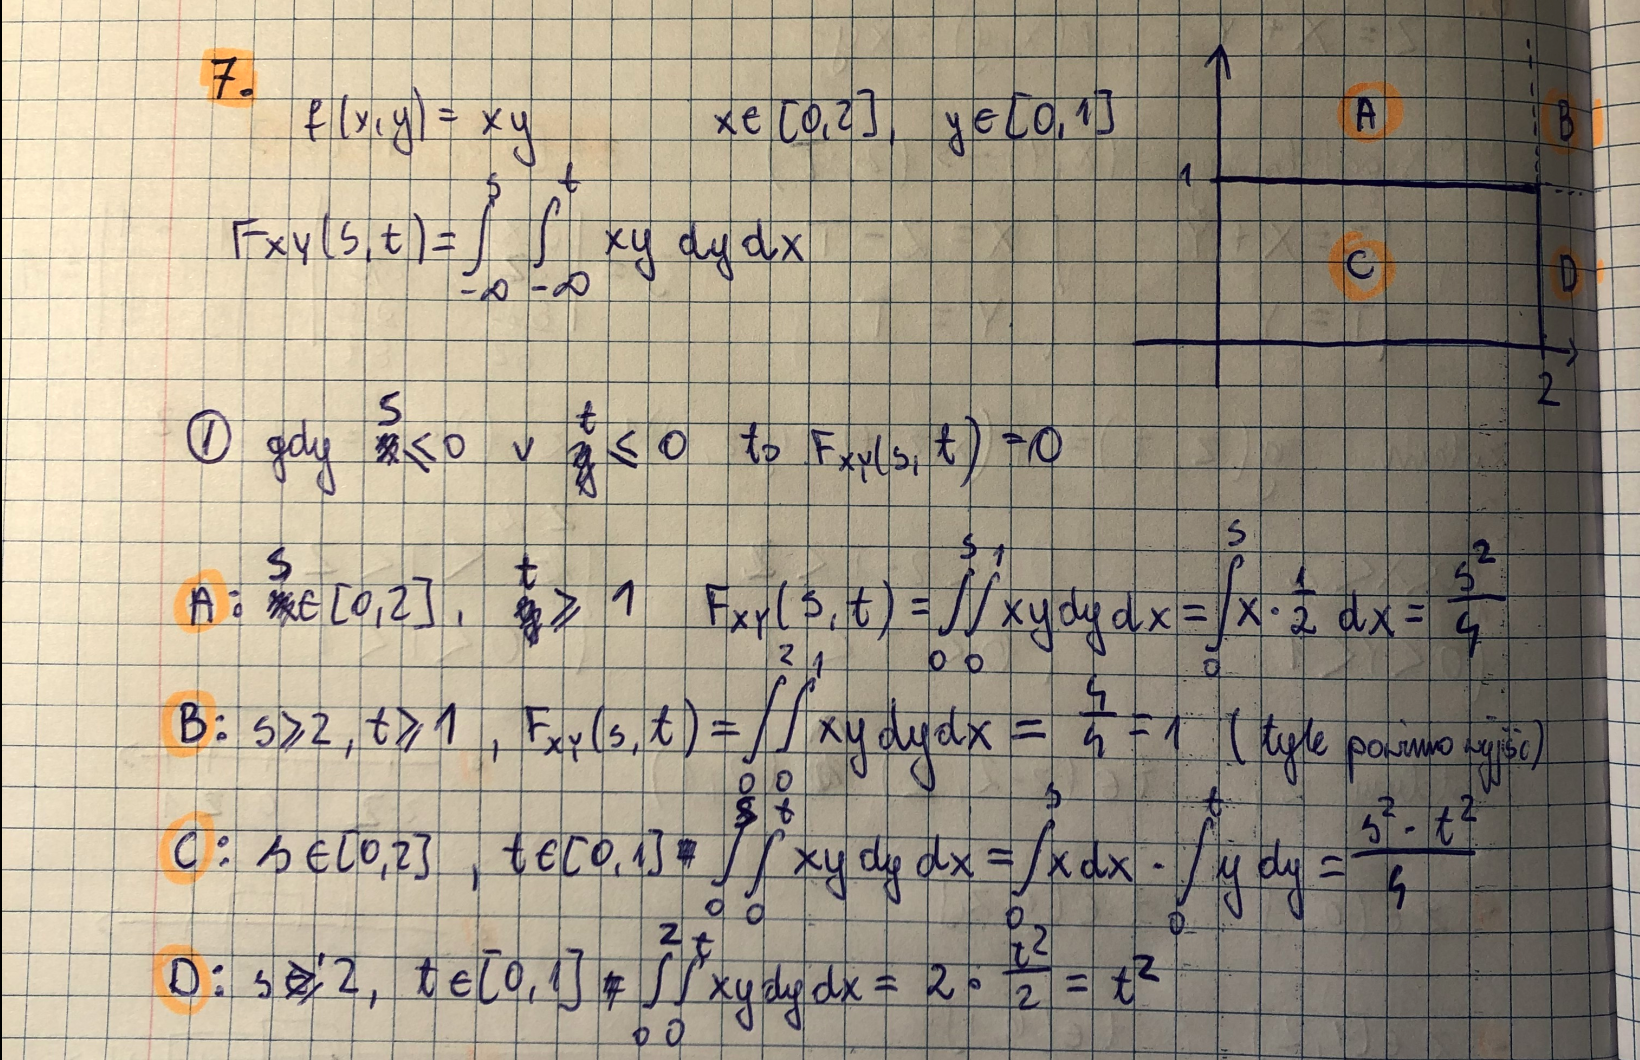 7.
f(x,y) = xy x∈[0,2], y∈[0,1]
F_XY(s,t) = ∫_{-∞}^{s} ∫_{-∞}^{t} xy dy dx
A B
1
C D
2
① gdy s ≤ 0 ∨ t ≤ 0 to F_XY(s,t) = 0
A: s∈[0,2], t ≥ 1 F_XY(s,t) = ∫_0^s ∫_0^1 xy dy dx = ∫_0^s x · 1/2 dx = s²/4
B: s ≥ 2, t ≥ 1, F_XY(s,t) = ∫_0^2 ∫_0^1 xy dy dx = 4/4 = 1 (tyle powinno wyjść)
C: s∈[0,2], t∈[0,1] ∫_0^s ∫_0^t xy dy dx = ∫_0^s x dx · ∫_0^t y dy = s² · t²/4
D: s ≥ 2, t∈[0,1] ∫_0^2 ∫_0^t xy dy dx = 2 · t²/2 = t²